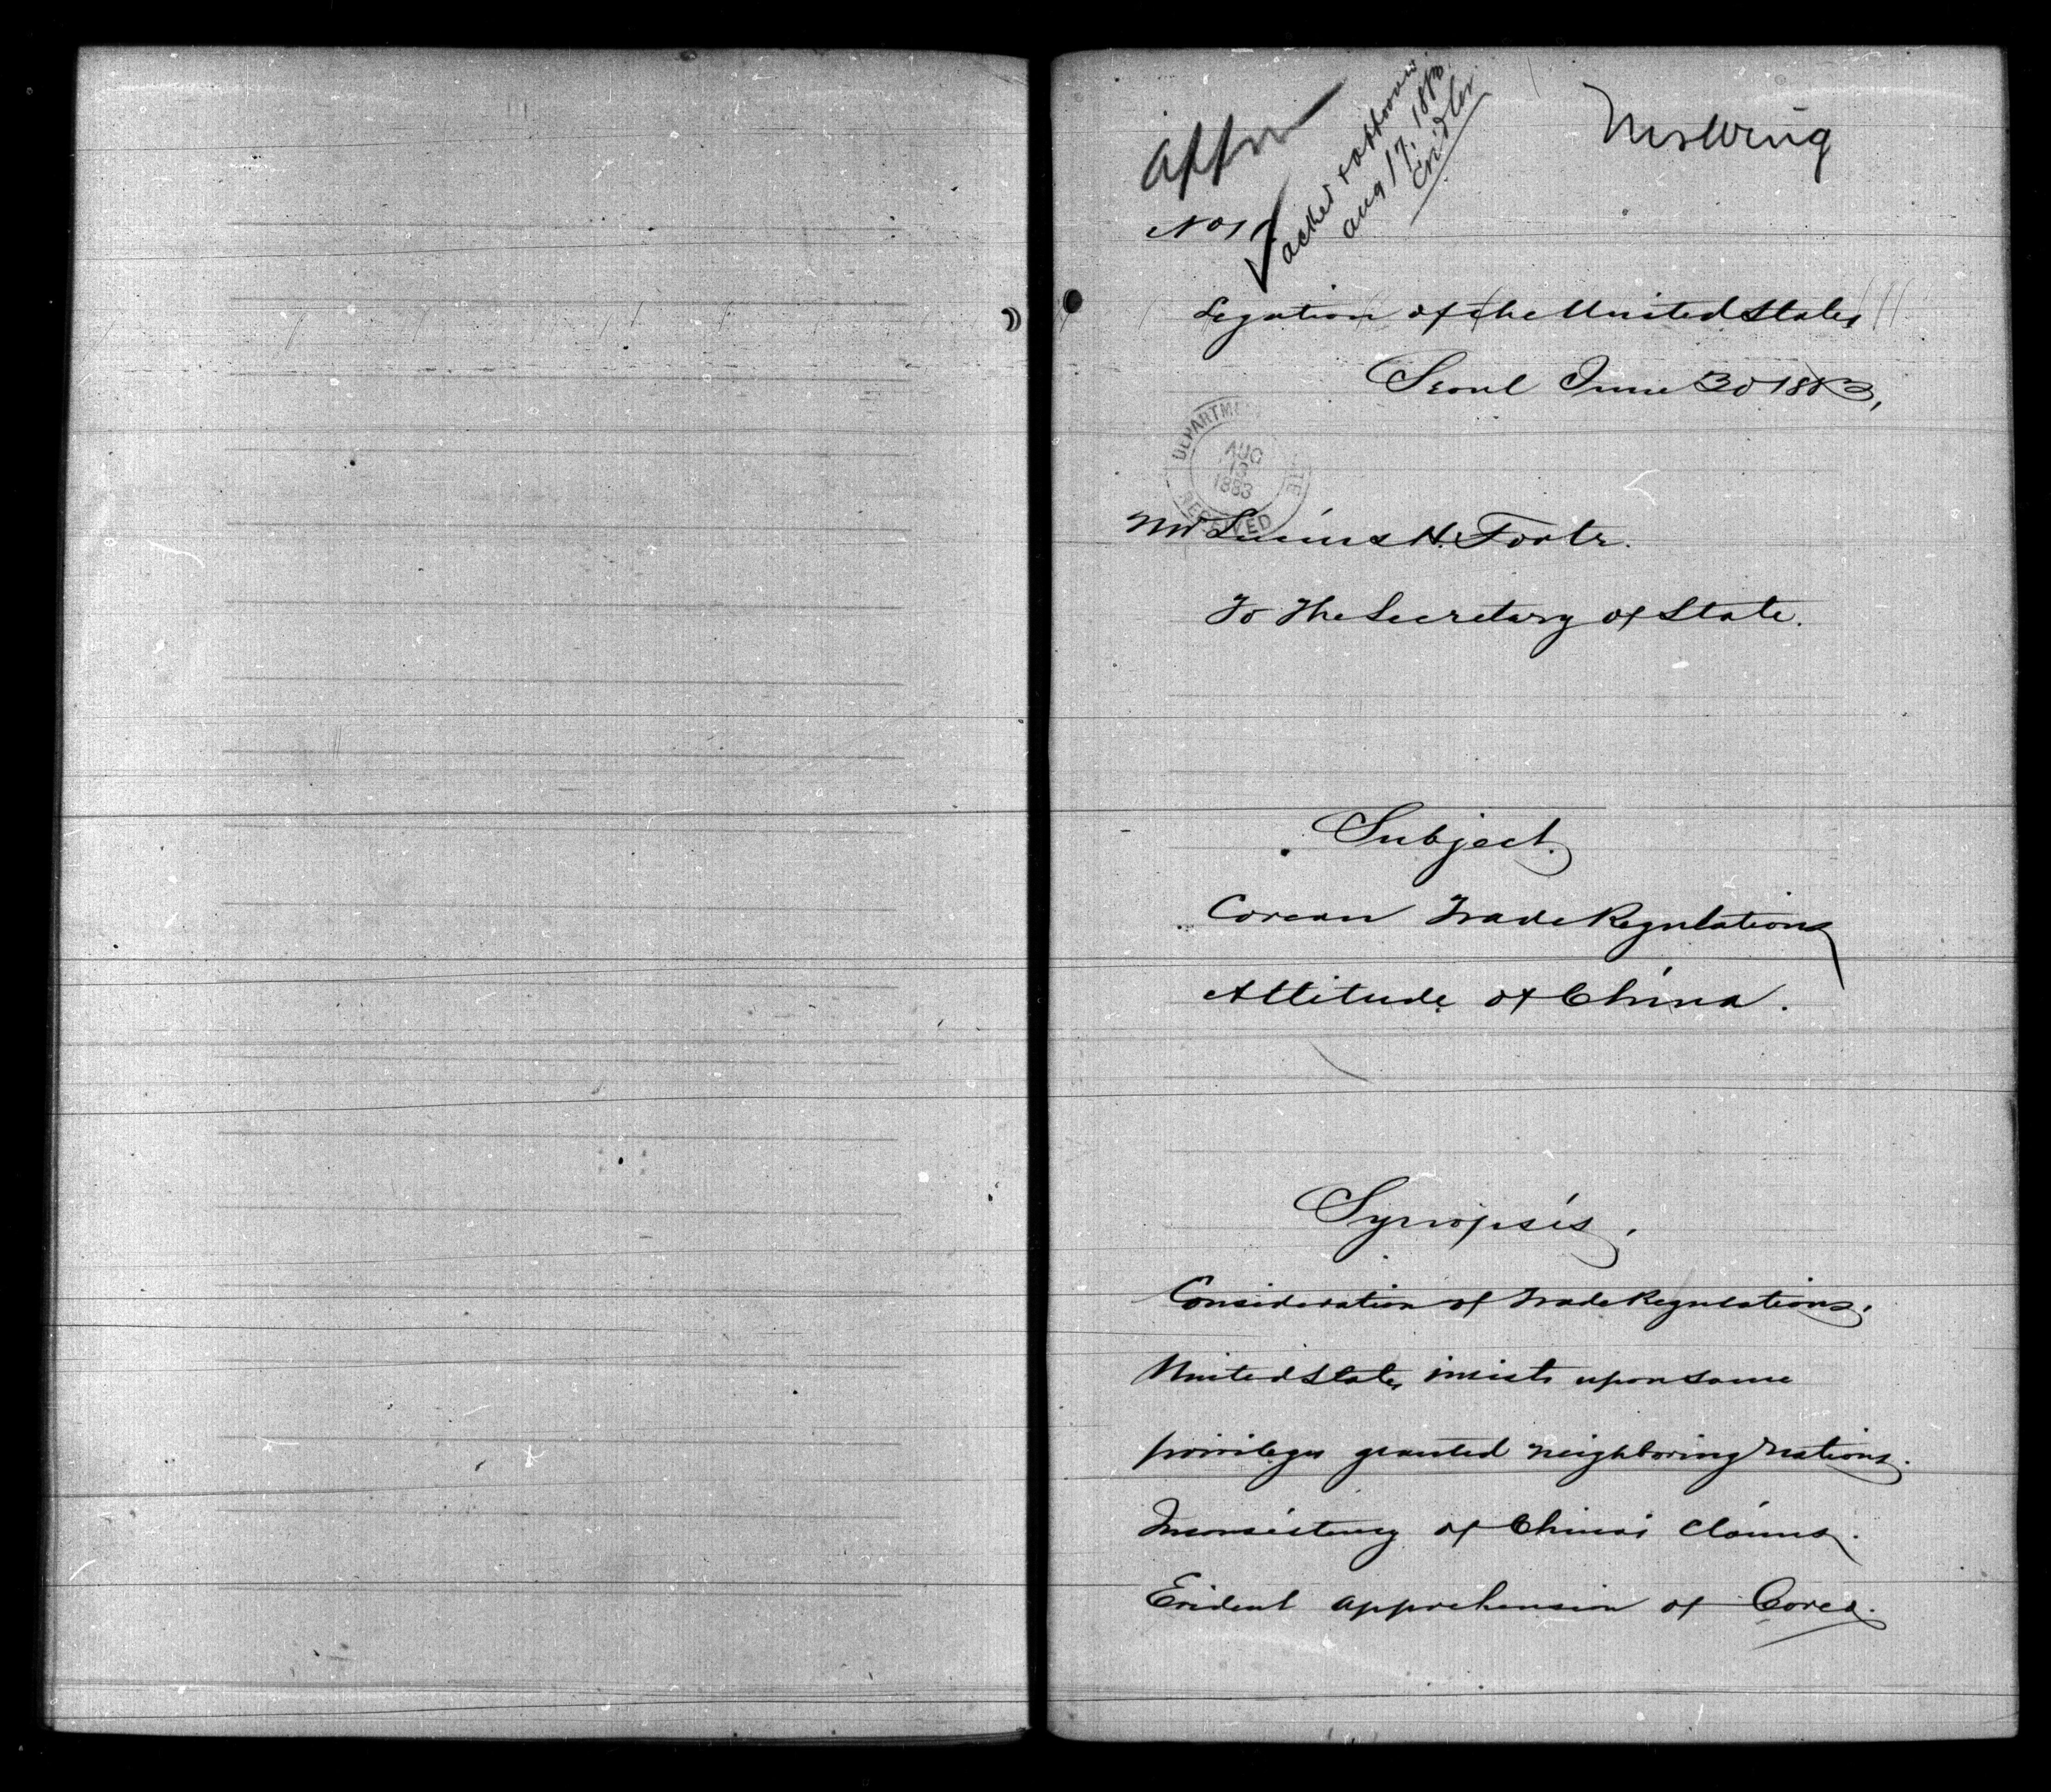 appr
Mr Wing
acked & approved
Aug 17, 1883
Cridler
No 1
Legation of the United States
Seoul June 30 1883,
DEPARTMENT STATE
AUG
13
1883
RECEIVED
Mr Lucius H. Foote.
To The Secretary of State.
Subject.
Corean Trade Regulations
Attitude of China.
Synopsis,
Consideration of Trade Regulations,
United States insists upon same
privileges granted neighboring nations.
Inconsistency of China's claims.
Evident apprehension of Corea.